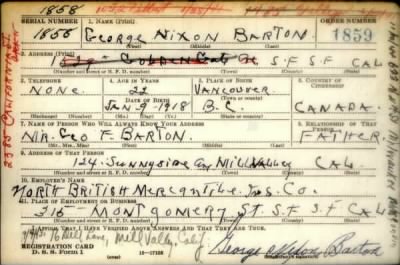 1858
SERIAL NUMBER 1. NAME (Print) ORDER NUMBER
1855 GEORGE NIXON BARTON 1859
(First) (Middle) (Last)
2. ADDRESS (Print)
GOLDEN GATE S.F. S.F. CAL
(Number and street or R. F. D. number) (Town) (County) (State)
3. TELEPHONE 4. AGE IN YEARS 5. PLACE OF BIRTH 6. COUNTRY OF CITIZENSHIP
NONE. 22 VANCOUVER
DATE OF BIRTH (Town or county)
JAN 9-1918 B.C. CANADA.
(Exchange) (Number) (Mo.) (Day) (Yr.) (State or country)
7. NAME OF PERSON WHO WILL ALWAYS KNOW YOUR ADDRESS 8. RELATIONSHIP OF THAT PERSON
MR. GEO F. BARTON. FATHER.
(Mr., Mrs., Miss) (First) (Middle) (Last)
9. ADDRESS OF THAT PERSON
124. SUNNYSIDE AV MILL VALLEY CAL.
(Number and street or R. F. D. number) (Town) (County) (State)
10. EMPLOYER'S NAME
NORTH BRITISH MERCANTILE INS. CO.
11. PLACE OF EMPLOYMENT OR BUSINESS
315 MONTGOMERY ST. S.F. S.F CAL
(Number and street or R. F. D. number) (Town) (County) (State)
I AFFIRM THAT I HAVE VERIFIED ABOVE ANSWERS AND THAT THEY ARE TRUE.
Mill Valley, Calif.
REGISTRATION CARD
D. S. S. Form 1 George Nixon Barton
(Registrant's signature)
2385 CALIFORNIA ST.